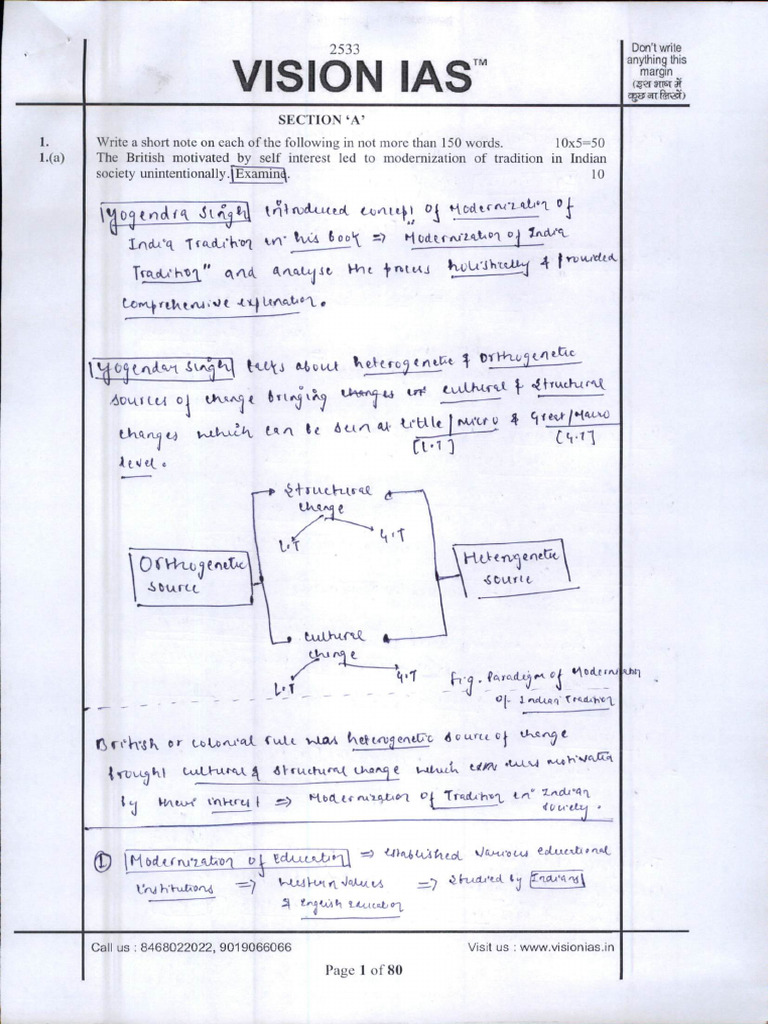 2533
VISION IAS™
Don't write
anything this
margin
(इस भाग में
कुछ ना लिखें)
SECTION 'A'
1. Write a short note on each of the following in not more than 150 words. 10x5=50
1.(a) The British motivated by self interest led to modernization of tradition in Indian
society unintentionally. Examine. 10
Yogendra Singh introduced concept of Modernization of
India Tradition in his book ⇒ "Modernization of India
Tradition" and analyse the process holistically & Provided
comprehensive explanation.
Yogendar Singh talks about heterogenetic & Orthogenetic
sources of change bringing changes in cultural & Structural
changes which can be seen at little/Micro & Great/Macro
[L.T] [G.T]
level.
Structural
change
L.T G.T
Orthogenetic
source
Heterogenetic
source
Cultural
change
L.T G.T
Fig. Paradigm of Modernization
of Indian Tradition
British or colonial rule was heterogenetic source of change
brought cultural & structural change which was motivated
by their interest ⇒ Modernization of Tradition in Indian
society.
① Modernization of Education ⇒ established various educational
institutions ⇒ Western values ⇒ Studied by Indians
& English Education
Call us : 8468022022, 9019066066 Visit us : www.visionias.in
Page 1 of 80